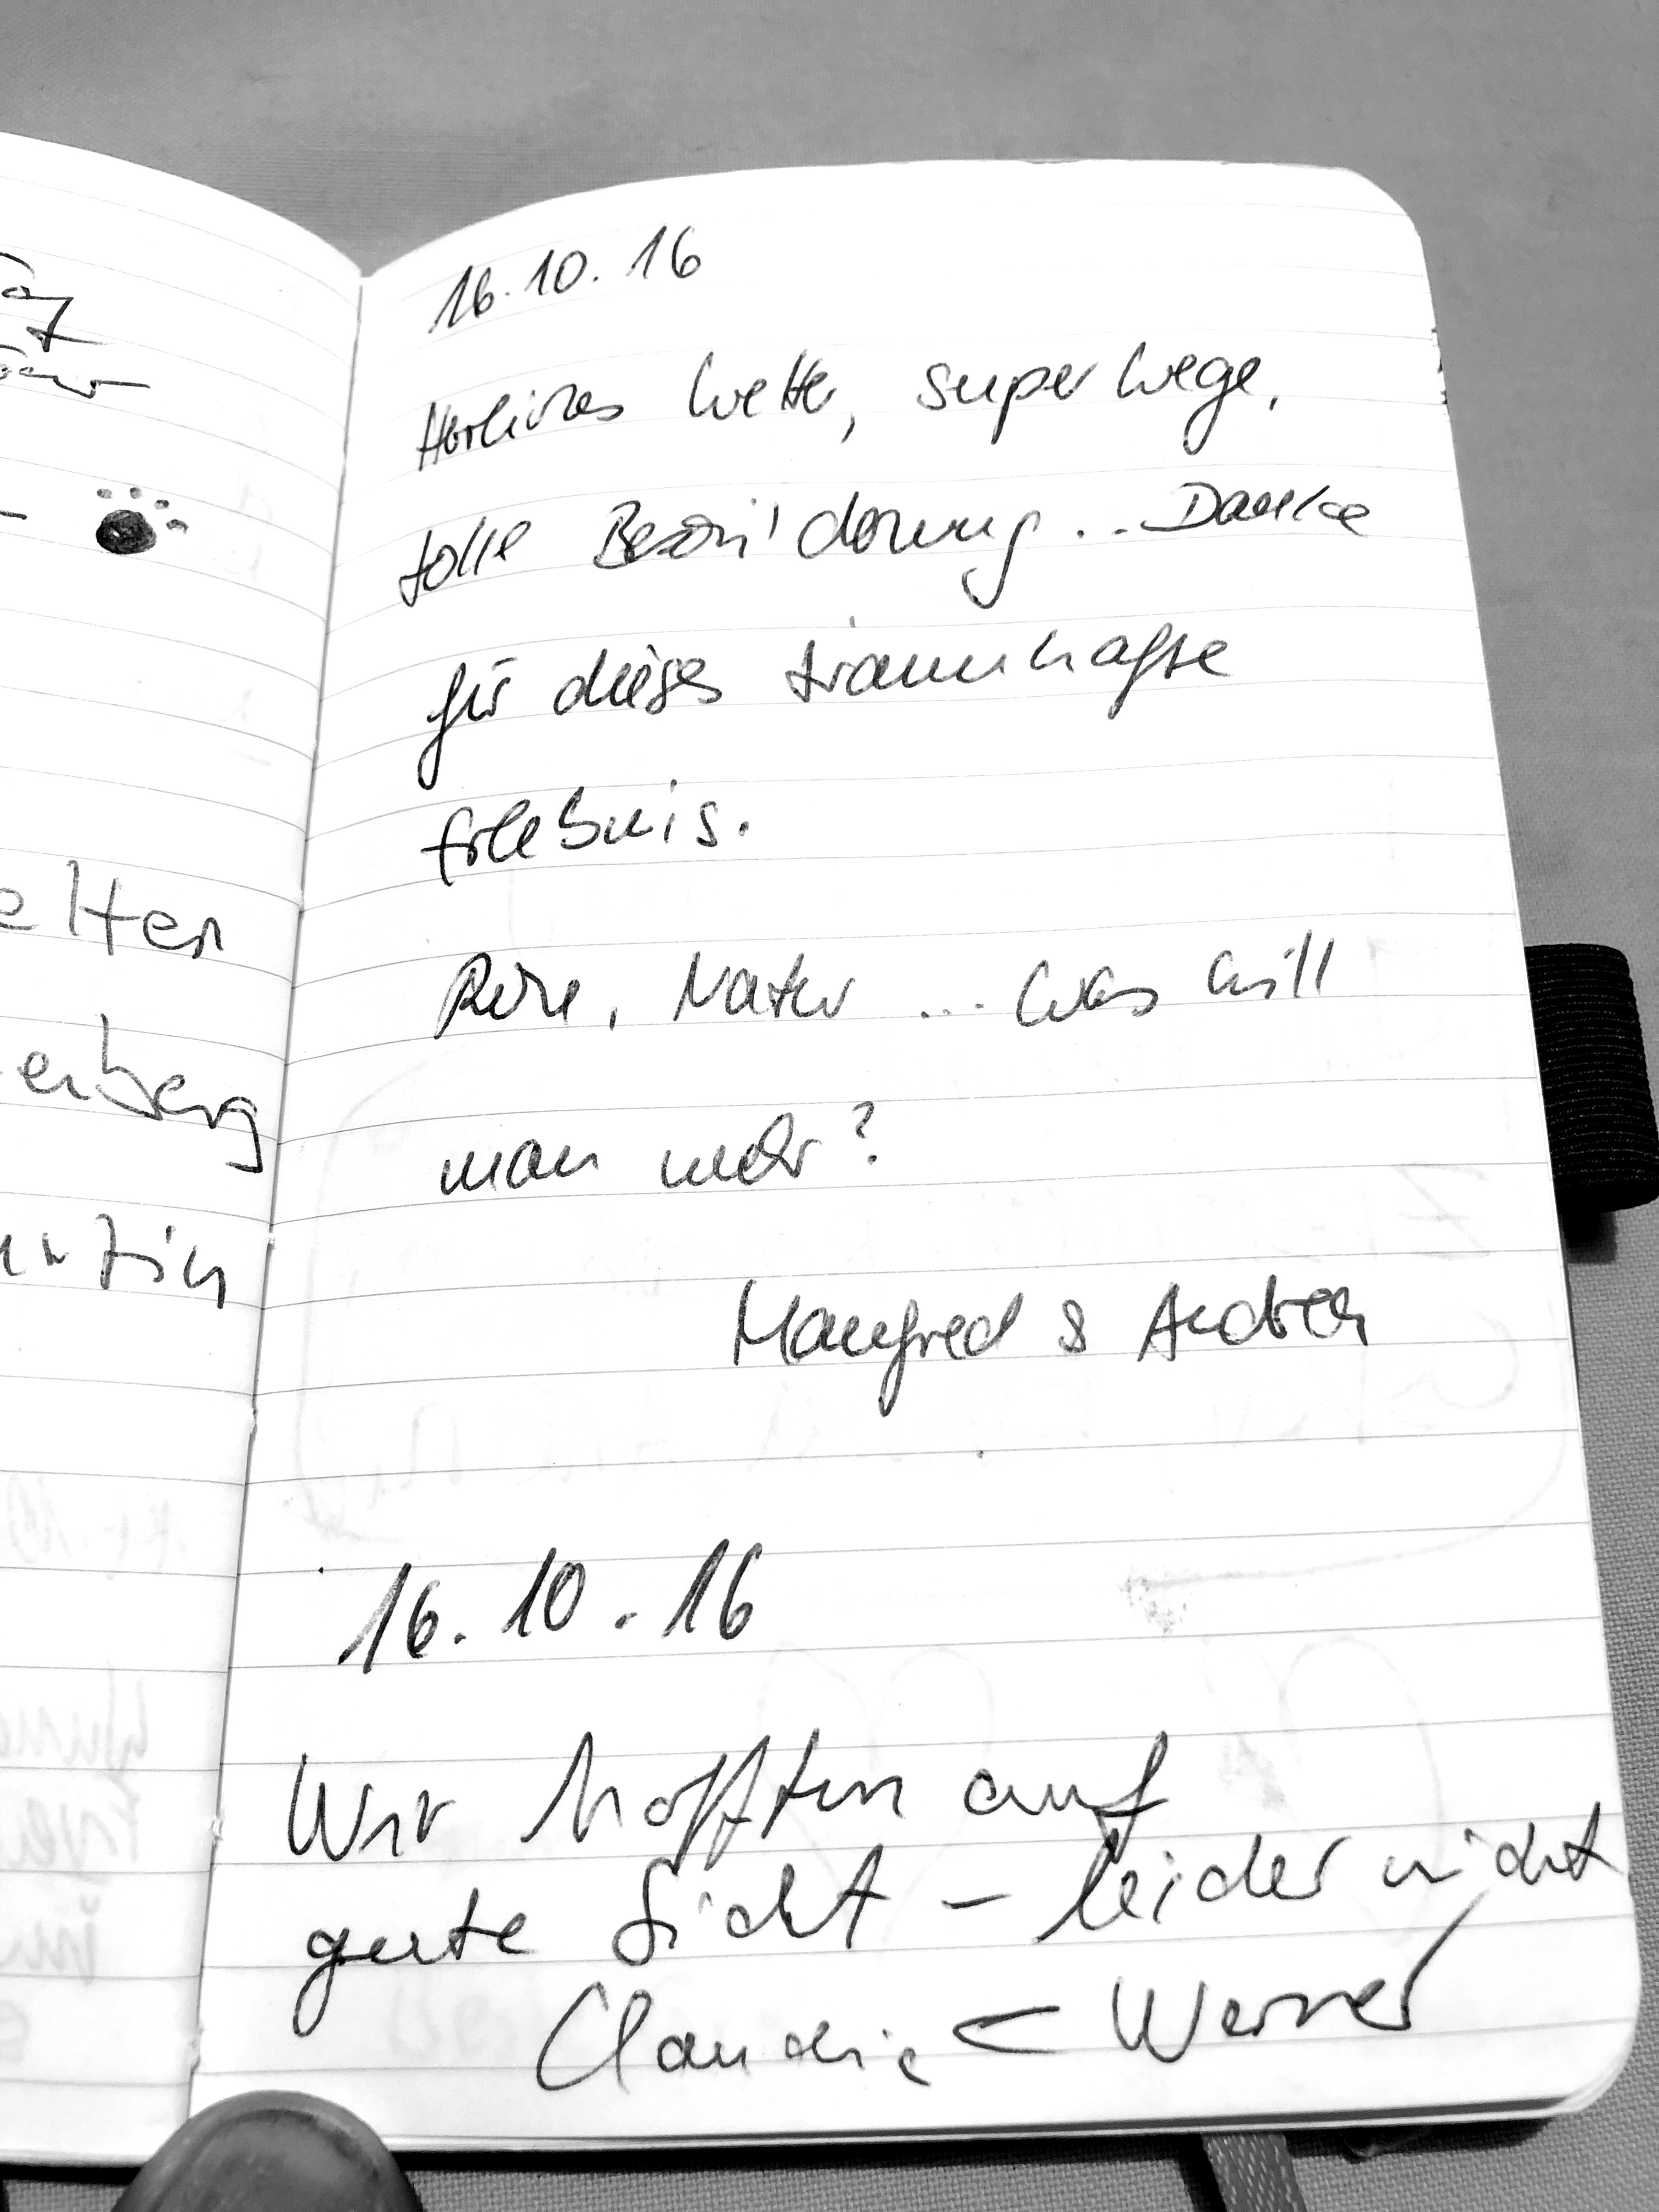 elten
enberg
16.10.16
Herrliches Wetter, super Wege,
tolle ... Danke
für dieses traumhafte
Erlebnis.
Ruhe, Natur ... was will
man mehr?
Manfred & Andrea
16.10.16
Wir hofften auf
gute Sicht – leider nicht
Claudia Werner